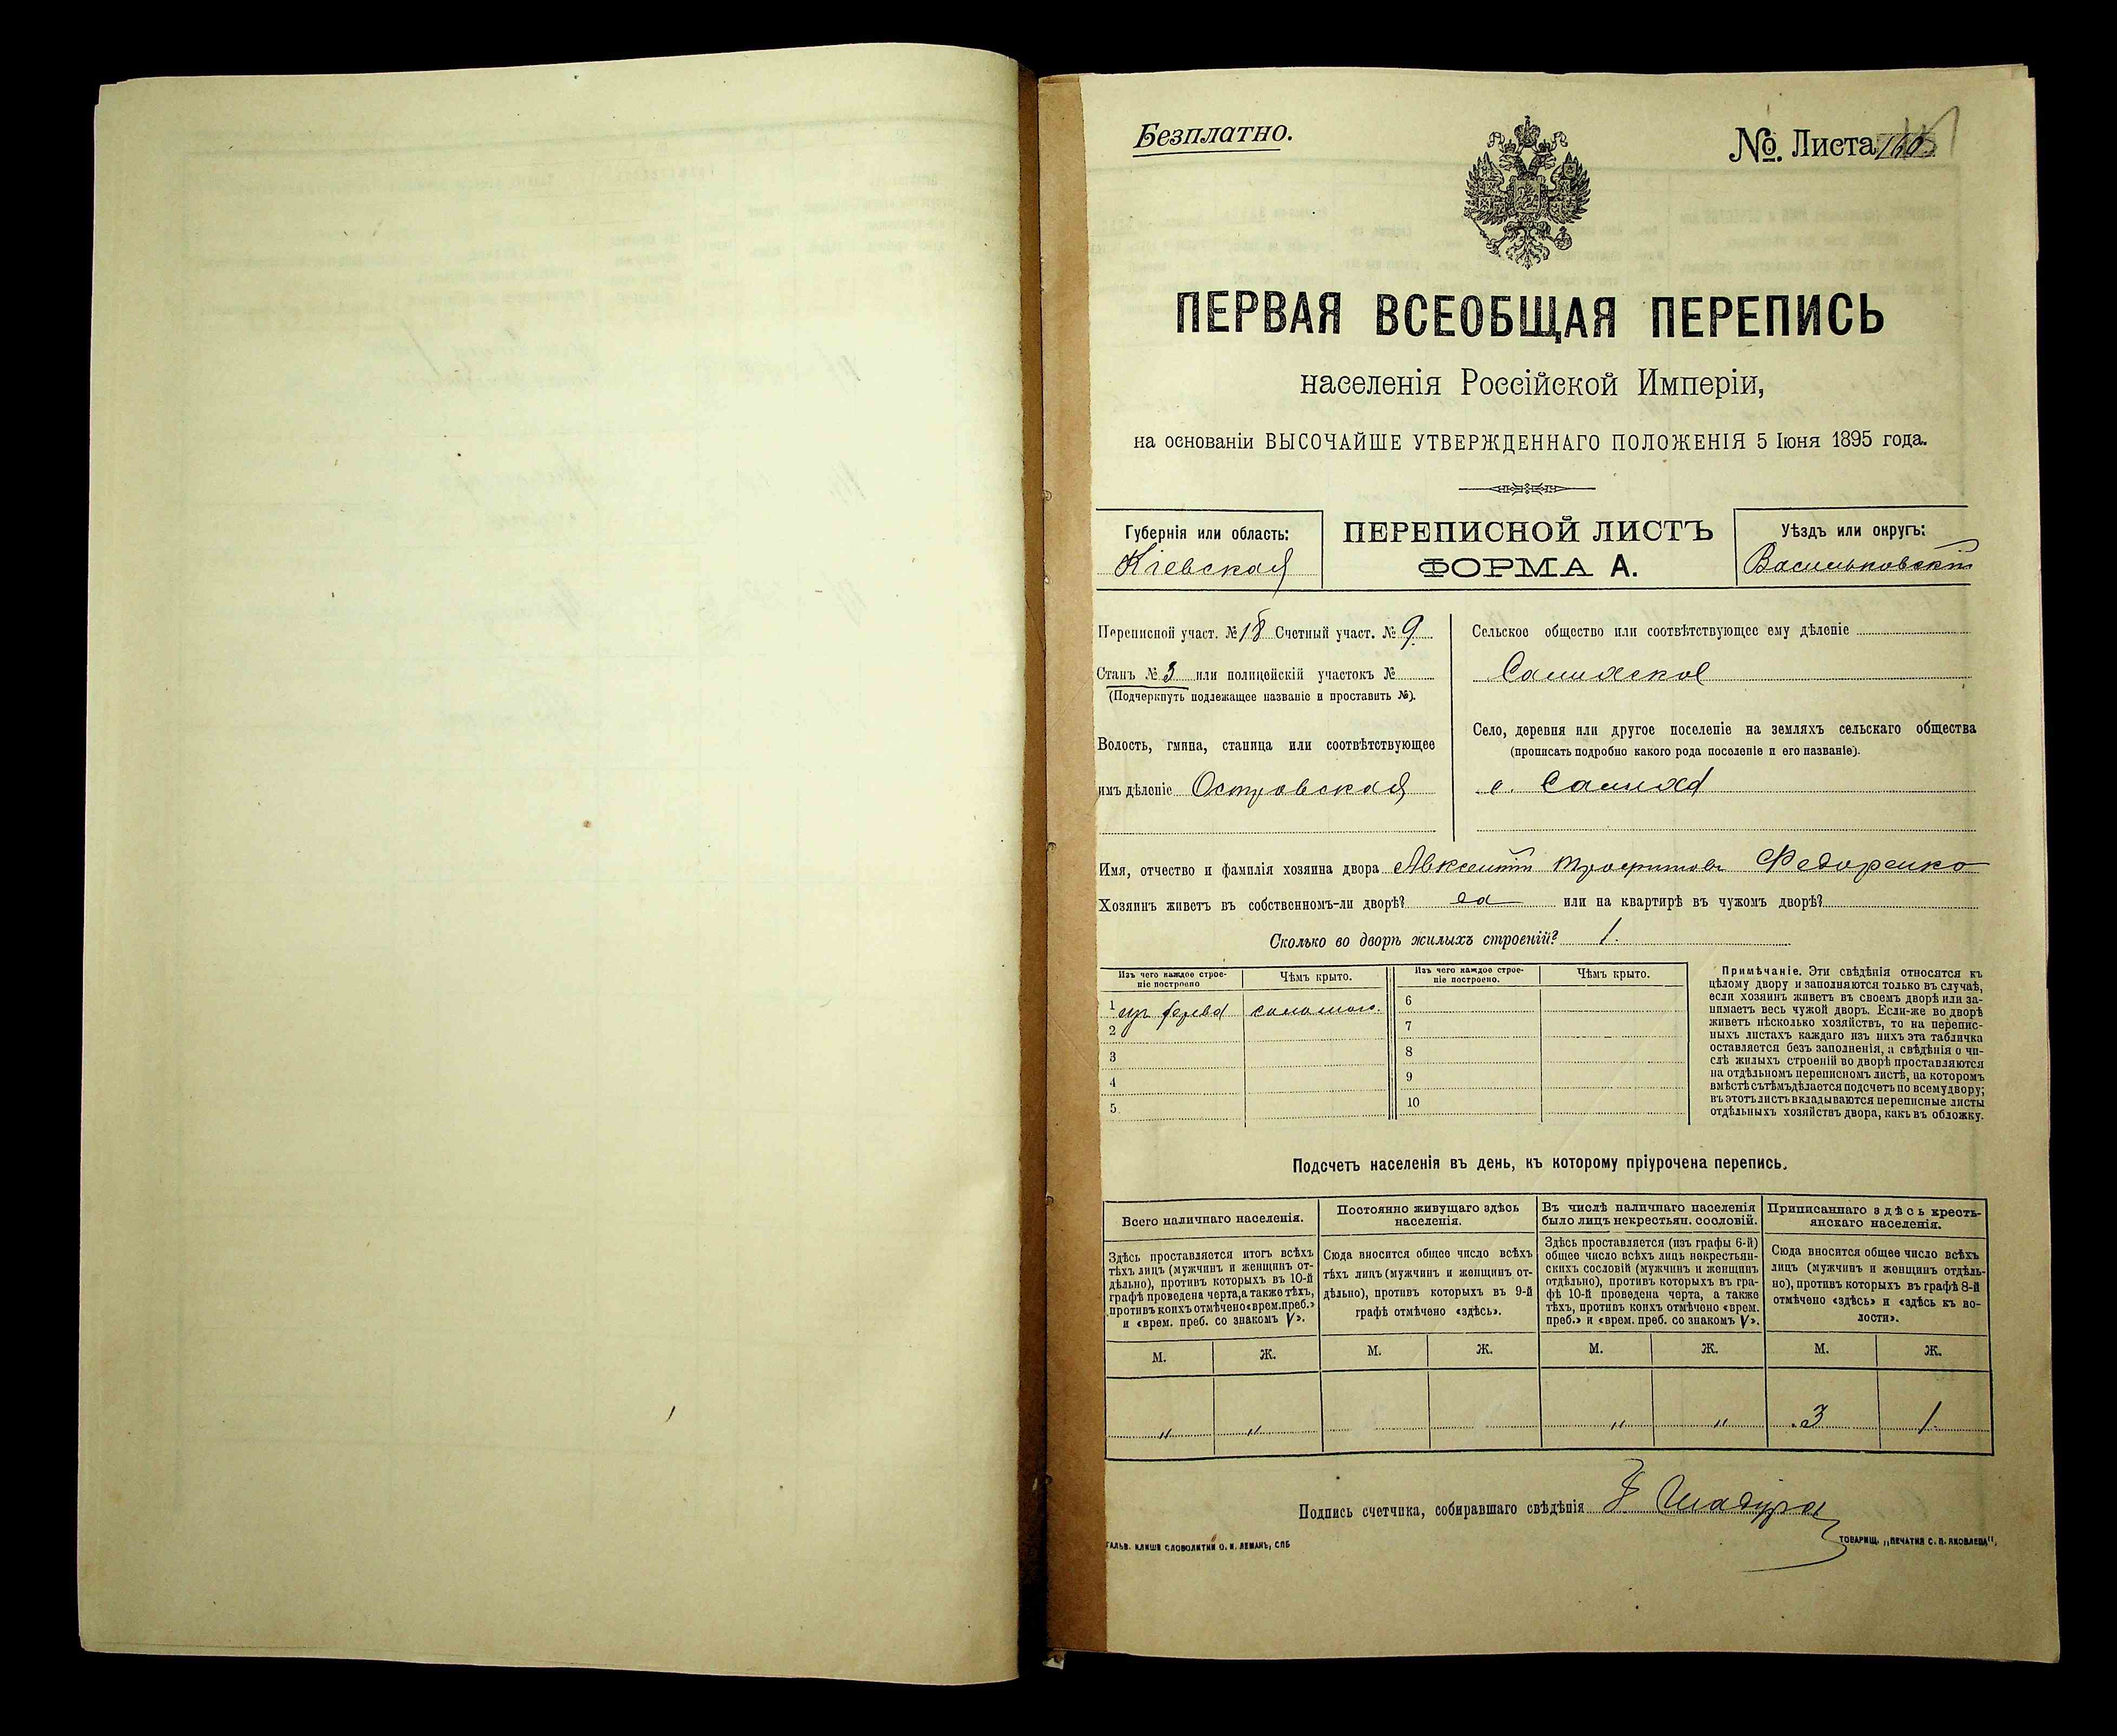 Безплатно.
№ Листа 160
ПЕРВАЯ ВСЕОБЩАЯ ПЕРЕПИСЬ
населенія Россійской Имперіи,
на основаніи ВЫСОЧАЙШЕ УТВЕРЖДЕННАГО ПОЛОЖЕНІЯ 5 Іюня 1895 года.
Губернія или область:
Кіевская
ПЕРЕПИСНОЙ ЛИСТЪ
ФОРМА А.
Уѣздъ или округъ:
Васильковскій
Переписной участ. № 18 Счетный участ. № 9
Станъ № 3 или полицейскій участокъ №
(Подчеркнуть подлежащее названіе и проставить №).
Волость, гмина, станица или соотвѣтствующее
имъ дѣленіе Островская
Сельское общество или соотвѣтствующее ему дѣленіе
Салихское
Село, деревня или другое поселеніе на земляхъ сельскаго общества
(прописать подробно какого рода поселеніе и его названіе).
с. Салиха
Имя, отчество и фамилія хозяина двора Авксентій Трофимовъ Федоренко
Хозяинъ живетъ въ собственномъ-ли дворѣ? да или на квартирѣ въ чужомъ дворѣ?
Сколько во дворѣ жилыхъ строеній? 1.
Изъ чего каждое строе-
ніе построено
Чѣмъ крыто.
Изъ чего каждое строе-
ніе построено.
Чѣмъ крыто.
1 изъ дерева соломою.
2
3
4
5.
6
7
8
9
10
Примѣчаніе. Эти свѣдѣнія относятся къ
цѣлому двору и заполняются только въ случаѣ,
если хозяинъ живетъ въ своемъ дворѣ или за-
нимаетъ весь чужой дворъ. Если-же во дворѣ
живетъ нѣсколько хозяйствъ, то на перепис-
ныхъ листахъ каждаго изъ нихъ эта табличка
оставляется безъ заполненія, а свѣдѣнія о чи-
слѣ жилыхъ строеній во дворѣ проставляются
на отдѣльномъ переписномъ листѣ, на которомъ
вмѣстѣ съ тѣмъ дѣлается подсчетъ по всему двору;
въ этотъ листъ вкладываются переписные листы
отдѣльныхъ хозяйствъ двора, какъ въ обложку.
Подсчетъ населенія въ день, къ которому пріурочена перепись.
Всего наличнаго населенія.
Здѣсь проставляется итогъ всѣхъ
тѣхъ лицъ (мужчинъ и женщинъ от-
дѣльно), противъ которыхъ въ 10-й
графѣ проведена черта, а также тѣхъ,
противъ коихъ отмѣчено «врем. преб.»
и «врем. преб. со знакомъ V».
Постоянно живущаго здѣсь
населенія.
Сюда вносится общее число всѣхъ
тѣхъ лицъ (мужчинъ и женщинъ от-
дѣльно), противъ которыхъ въ 9-й
графѣ отмѣчено «здѣсь».
Въ числѣ наличнаго населенія
было лицъ некрестьян. сословій.
Здѣсь проставляется (изъ графы 6-й)
общее число всѣхъ лицъ некрестьян-
скихъ сословій (мужчинъ и женщинъ
отдѣльно), противъ которыхъ въ гра-
фѣ 10-й проведена черта, а также
тѣхъ, противъ коихъ отмѣчено «врем.
преб.» и «врем. преб. со знакомъ V».
Приписаннаго здѣсь кресть-
янскаго населенія.
Сюда вносится общее число всѣхъ
лицъ (мужчинъ и женщинъ отдѣль-
но), противъ которыхъ въ графѣ 8-й
отмѣчено «здѣсь» и «здѣсь къ во-
лости».
М. Ж. М. Ж. М. Ж. М. Ж.
" " " " 3 1
Подпись счетчика, собиравшаго свѣдѣнія
ГАЛЬВ. КЛИШЕ СЛОВОЛИТНИ О. И. ЛЕМАНЪ, СПБ
ТОВАРИЩ. „ПЕЧАТНЯ С. П. ЯКОВЛЕВА“.